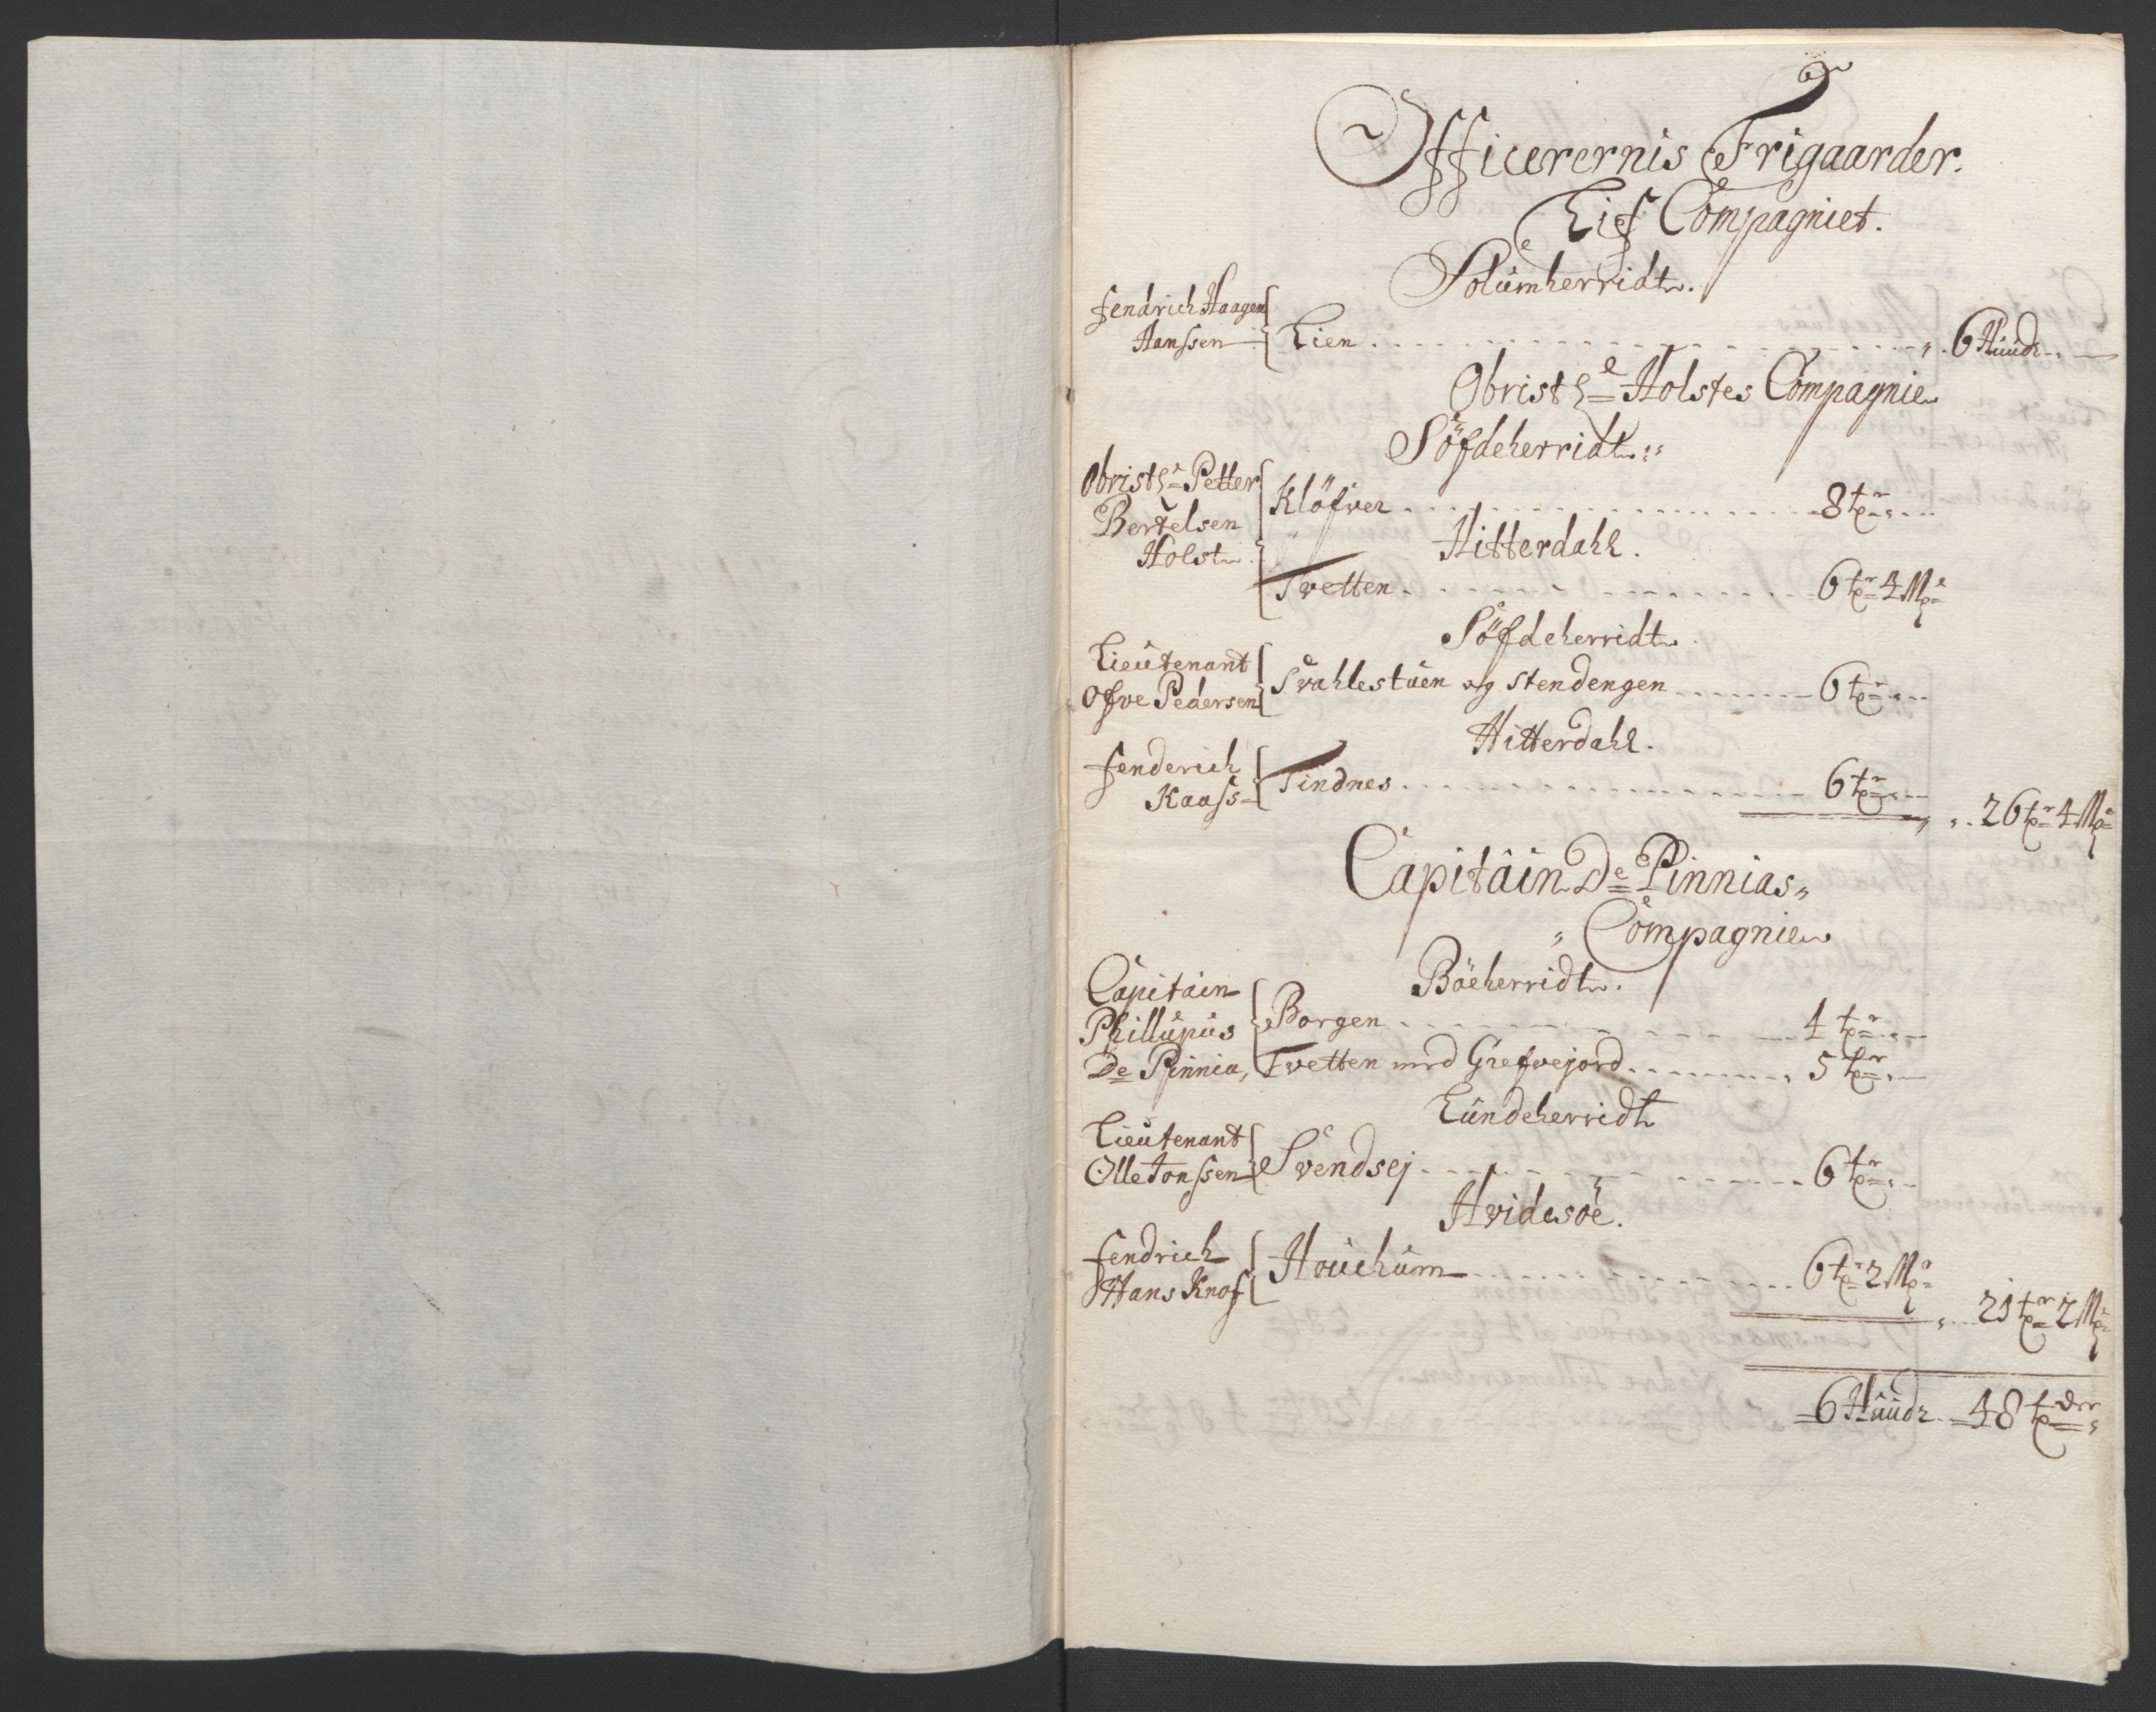 Officerernis Frigaarder.
Lif Compagniet.
Solumherridt.
Fendrich Haagen
Hanssen Lien 6 Huudr
Obristl Holstes Compagnie
Söfdeherridt
Obristl Petter
Bertelsen
Holst
Klöfver 8 tpr
Hitterdahl.
Tvetten 6 tpr 4 Mpl
Söfdeherridt
Lieutenant
Ofve Pedersen Svahlestuen og Stendengen 6 tpr
Hitterdahl.
Fenderich
Kaass Tindnes 6 tpr
26 tpr 4 Mpl
Capitain De Pinnias
Compagnie
Böeherridt.
Capitain
Phillupus
De Pinnia,
Borgen 4 tpr
Tvetten med Grefvejord 5 tpr
Lundeherridt
Lieutenant
Olle Jonssen Svendsej 6 tpr
Hvidesöe.
Fendrich
Hans Knof Houchum 6 tpr 2 Mpl
21 tpr 2 Mpl
6 Huudr 48 tpder